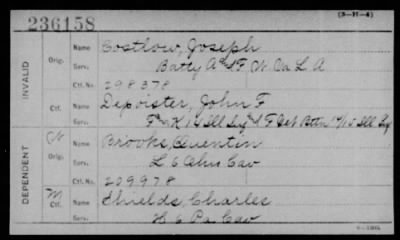 (3-H-4)
236158
INVALID
Orig.
Name Costlow, Joseph
Serv. Batty A & F W. Va L A
Ctf. No. 298378
Ctf.
Name Depoister, John F
Serv. K 10 Ill Ill
DEPENDENT
Orig.
Name Brooks, Quentin
Serv. L 6 Ohio Cav
Ctf. No. 209978
Ctf.
Name Shields, Charles
Serv. H 6 Pa Cav